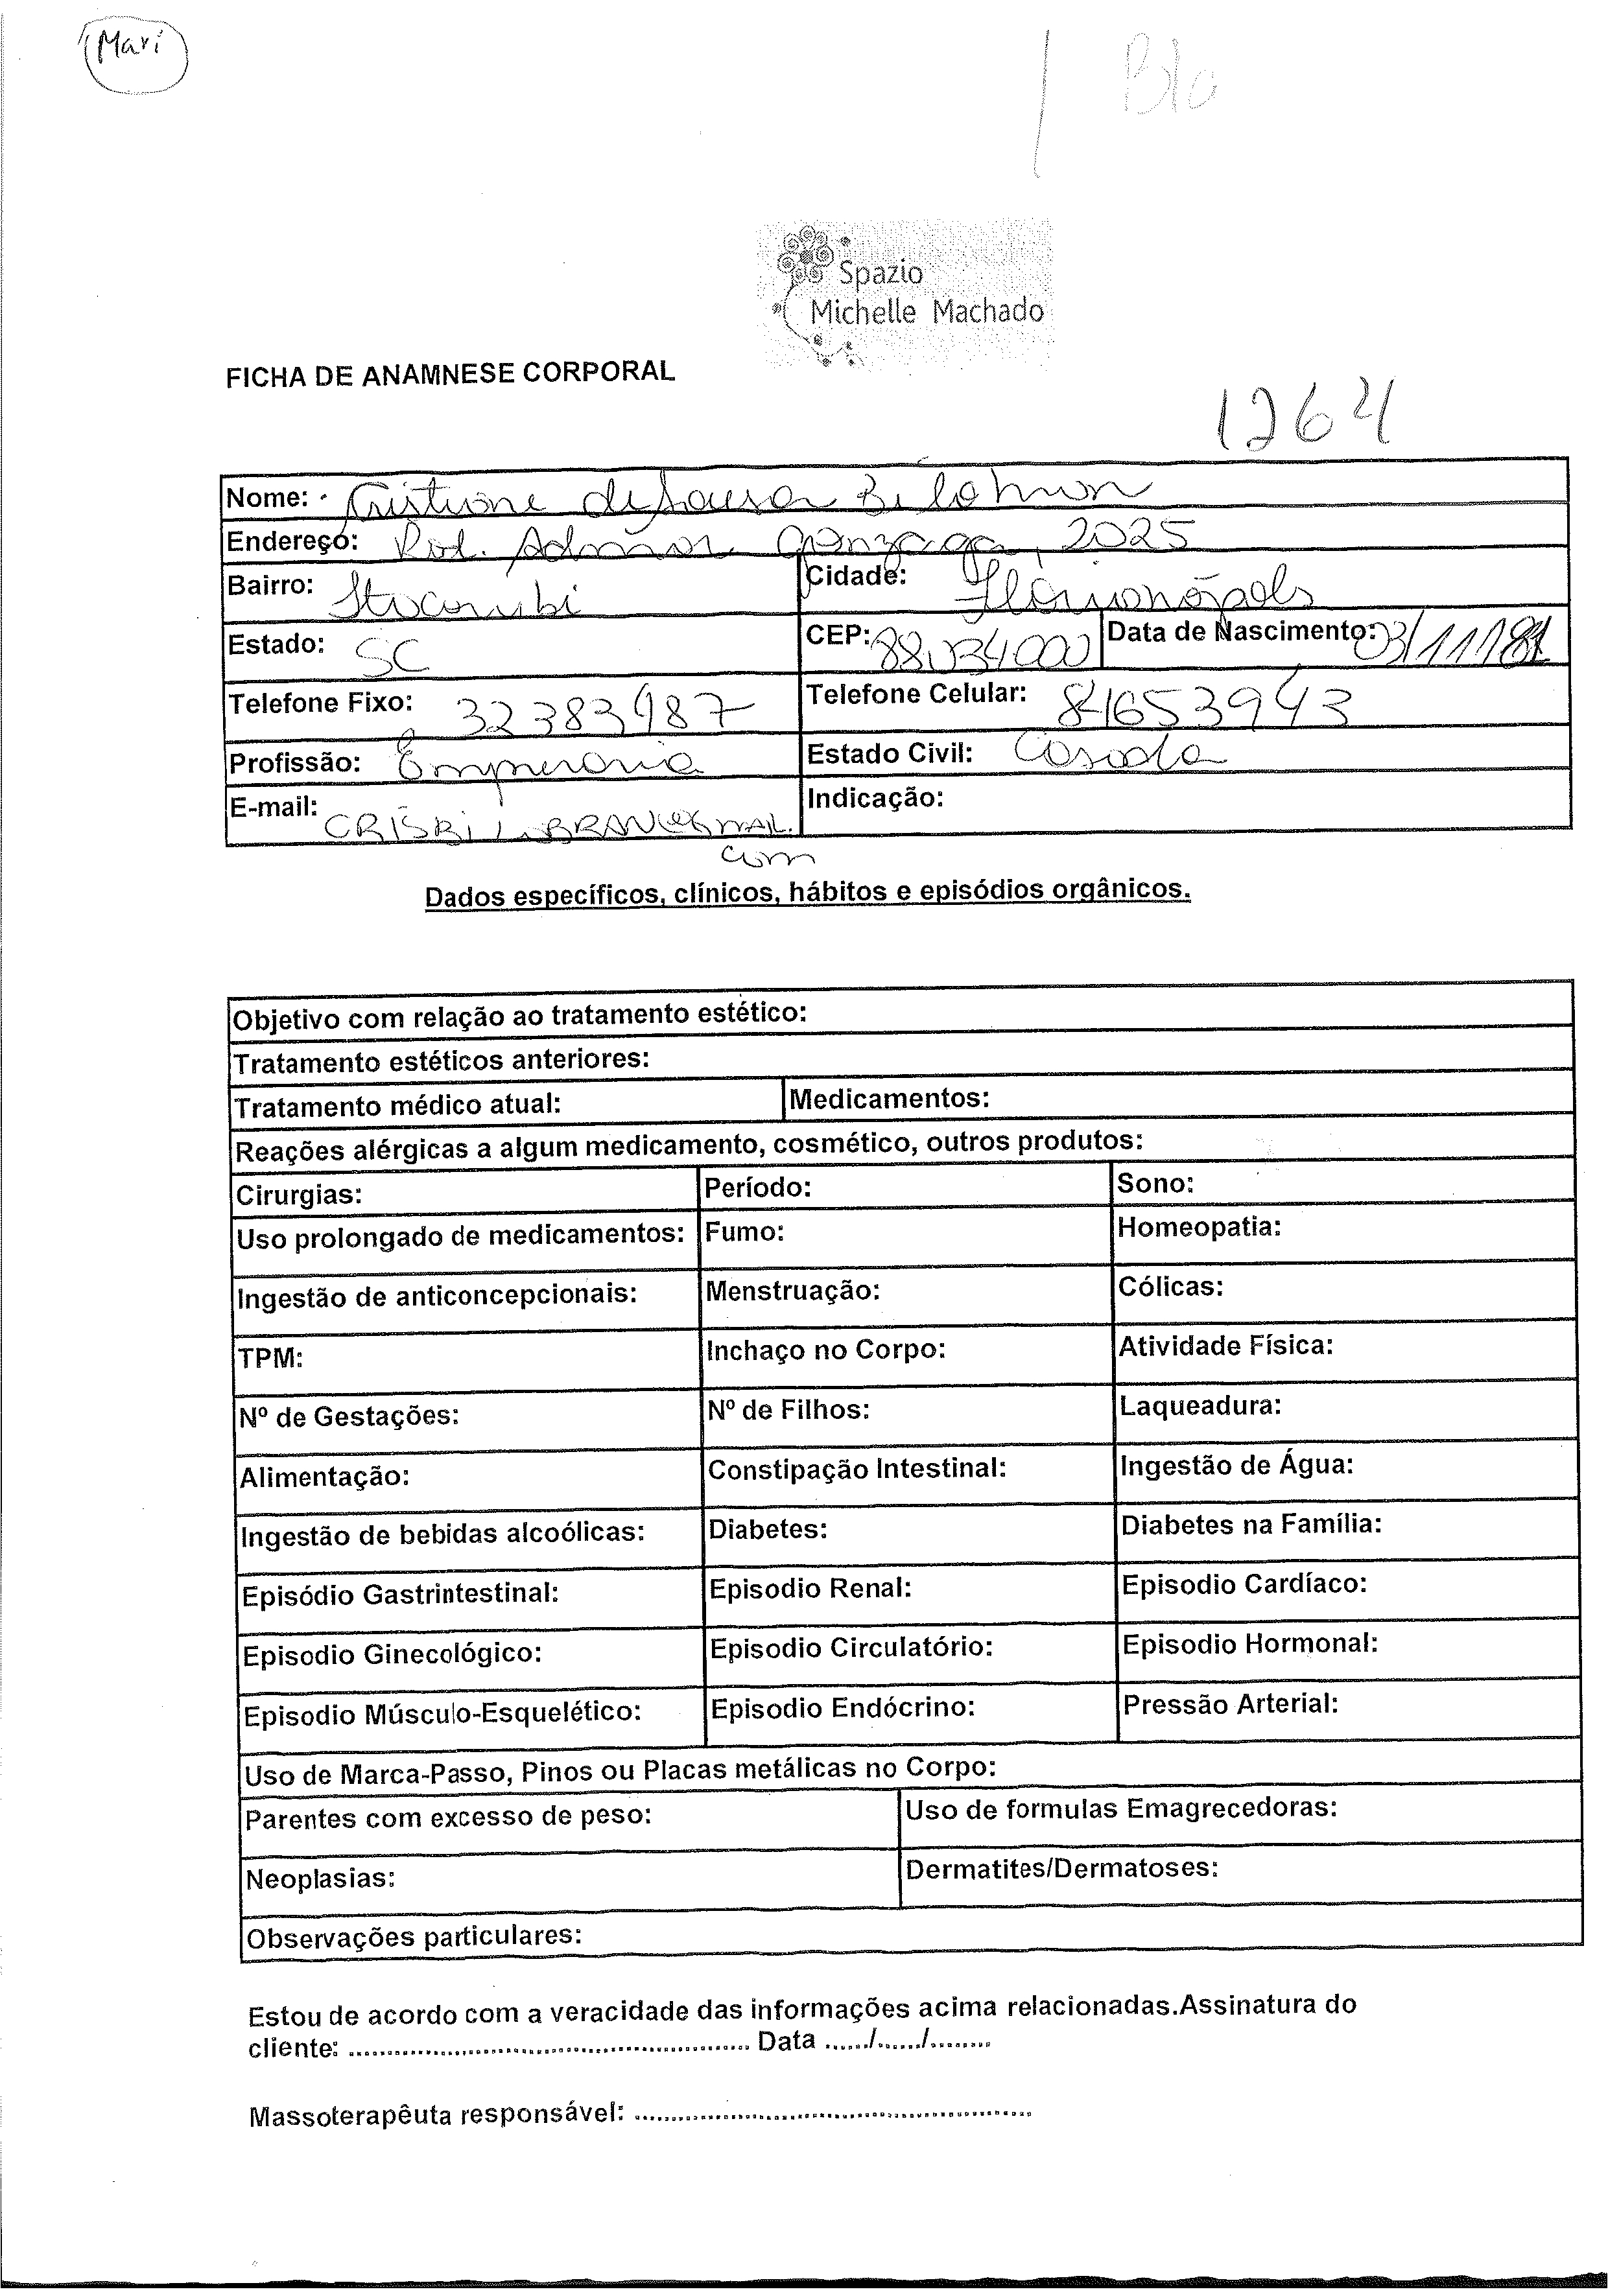 Mari
Spazio
Michelle Machado
FICHA DE ANAMNESE CORPORAL
1264
Nome: Cristiane de Souza
Endereço: Rod. Admar Gonzaga, 2025
Bairro: Itacorubi Cidade: Florianópolis
Estado: SC CEP: 88034000 Data de Nascimento: 03/11/81
Telefone Fixo: 32383987 Telefone Celular: 84653943
Profissão: Estado Civil: Casada
E-mail: Indicação:
com
Dados específicos, clínicos, hábitos e episódios orgânicos.
Objetivo com relação ao tratamento estético:
Tratamento estéticos anteriores:
Tratamento médico atual: Medicamentos:
Reações alérgicas a algum medicamento, cosmético, outros produtos:
Cirurgias: Período: Sono:
Uso prolongado de medicamentos: Fumo: Homeopatia:
Ingestão de anticoncepcionais: Menstruação: Cólicas:
TPM: Inchaço no Corpo: Atividade Física:
Nº de Gestações: Nº de Filhos: Laqueadura:
Alimentação: Constipação Intestinal: Ingestão de Água:
Ingestão de bebidas alcoólicas: Diabetes: Diabetes na Família:
Episódio Gastrintestinal: Episodio Renal: Episodio Cardíaco:
Episodio Ginecológico: Episodio Circulatório: Episodio Hormonal:
Episodio Músculo-Esquelético: Episodio Endócrino: Pressão Arterial:
Uso de Marca-Passo, Pinos ou Placas metálicas no Corpo:
Parentes com excesso de peso: Uso de formulas Emagrecedoras:
Neoplasias: Dermatites/Dermatoses:
Observações particulares:
Estou de acordo com a veracidade das informações acima relacionadas.Assinatura do
cliente: ........................................................ Data ....../....../........
Massoterapêuta responsável: ........................................................